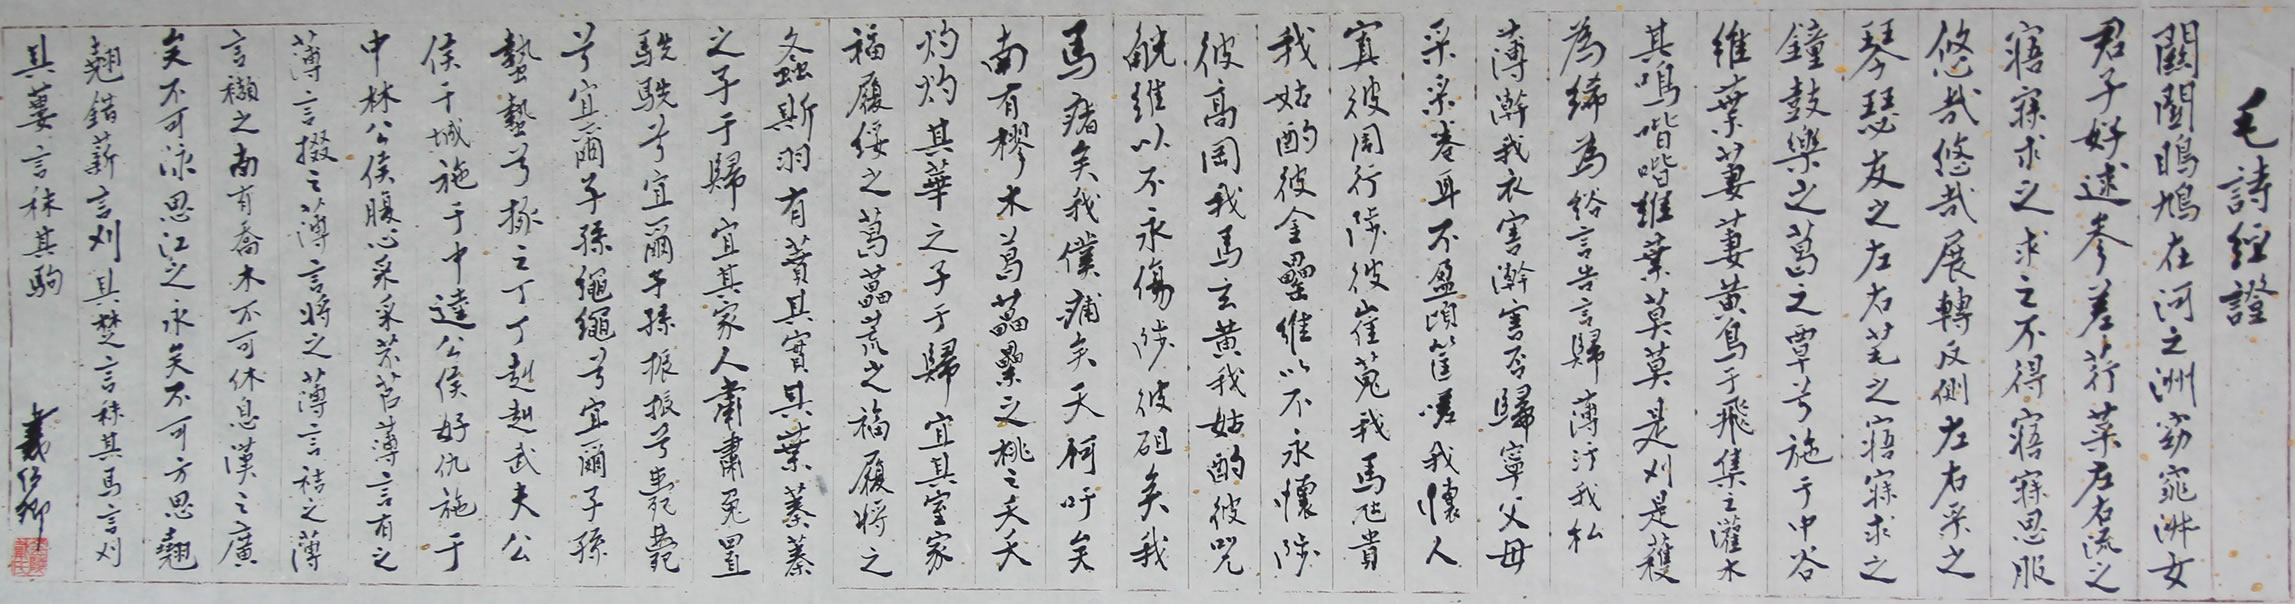 毛詩經證
關關鴡鳩在河之洲窈窕淑女
君子好逑參差荇菜左右流之
寤寐求之求之不得寤寐思服
悠哉悠哉展轉反側左右采之
琴瑟友之左右芼之寤寐求之
鐘鼓樂之葛之覃兮施于中谷
維葉萋萋黃鳥于飛集之灌木
其鳴喈喈維葉莫莫是刈是穫
為絺為綌言告言歸薄汙我私
薄澣我衣害澣害否歸寧父母
采采卷耳不盈頃筐嗟我懷人
寘彼周行陟彼崔嵬我馬虺隤
我姑酌彼金罍維以不永懷陟
彼高岡我馬玄黃我姑酌彼兕
觥維以不永傷陟彼砠矣我
馬瘏矣我僕痡矣云何吁矣
南有樛木葛藟纍之桃之夭夭
灼灼其華之子于歸宜其室家
福履綏之葛藟荒之福履將之
螽斯羽有蕡其實其葉蓁蓁
之子于歸宜其家人肅肅兔罝
駪駪兮宜爾子孫振振兮薨薨
兮宜爾子孫繩繩兮宜爾子孫
蟄蟄兮椓之丁丁赳赳武夫公
侯干城施于中逵公侯好仇施于
中林公侯腹心采采芣苢薄言有之
薄言掇之薄言將之薄言袺之薄
言襭之南有喬木不可休息漢之廣
矣不可泳思江之永矣不可方思翹
翹錯薪言刈其楚言秣其馬言刈
其蔞言秣其駒